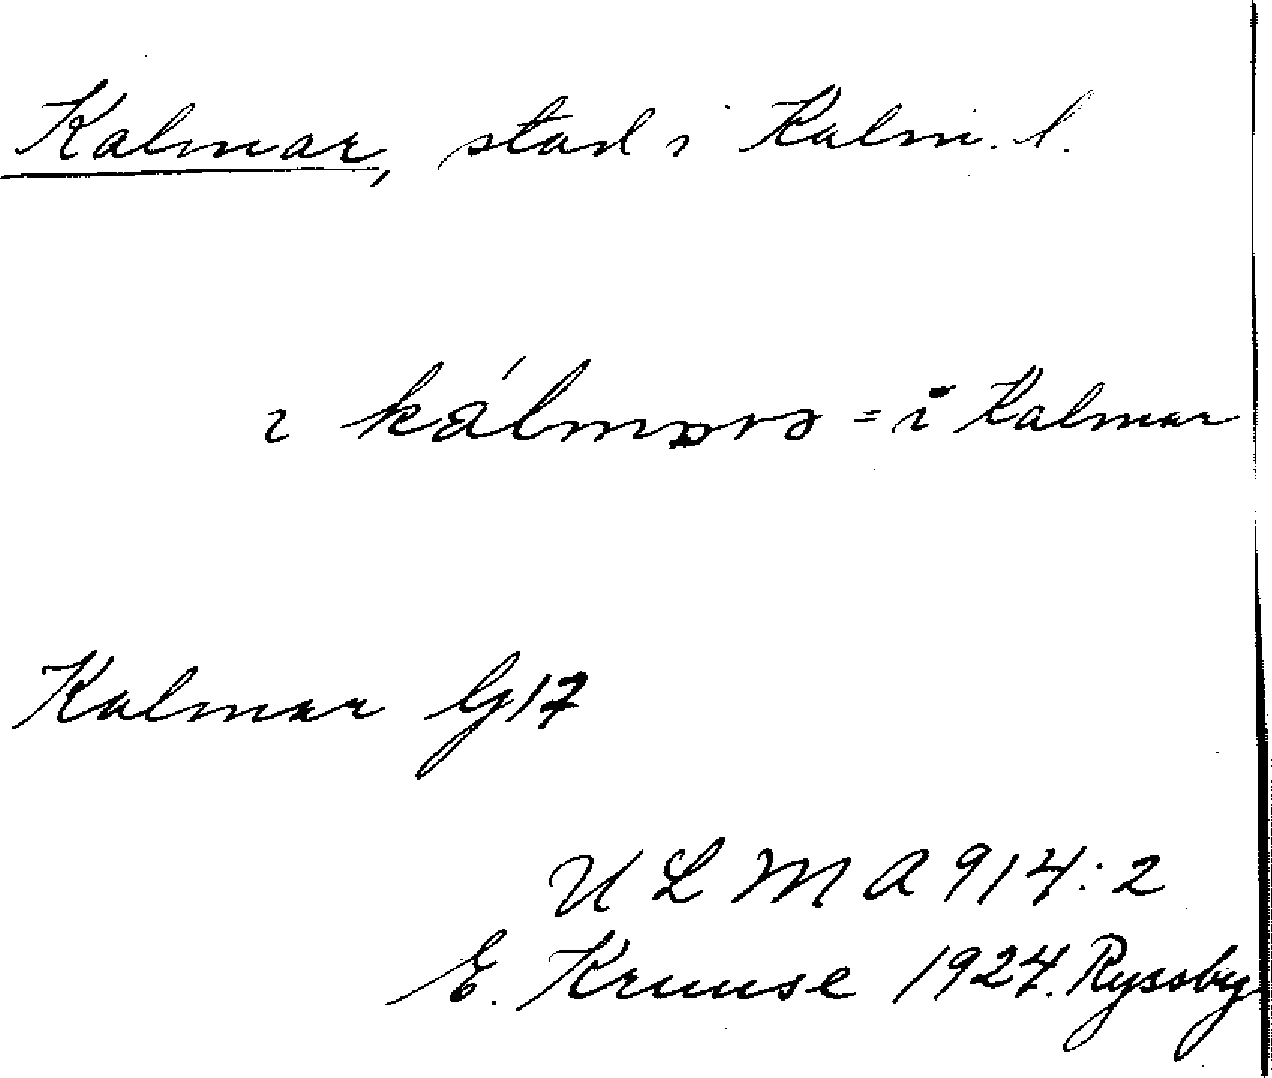 Kalmar, stad i Kalm. l.
i = i Kalmar
Kalmar G17
ULMA 914:2
E. Kruuse 1924. Ryssby